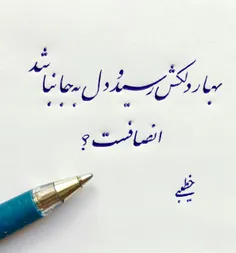 بهار دلکش رسید و دل به جا نباشد
انصافست؟
خطیبی